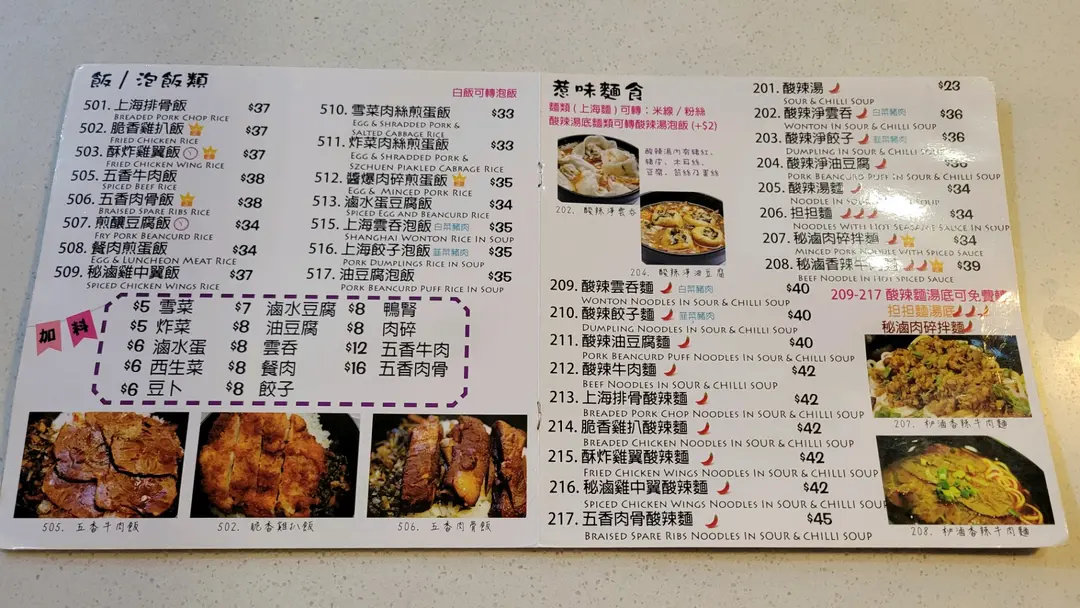 飯 / 泡飯類
白飯可轉泡飯
501. 上海排骨飯 $37
Breaded Pork Chop Rice
502. 脆香雞扒飯 $37
Fried Chicken Rice
503. 酥炸雞翼飯 $37
Fried Chicken Wing Rice
505. 五香牛肉飯 $38
Spiced Beef Rice
506. 五香肉骨飯 $38
Braised Spare Ribs Rice
507. 煎釀豆腐飯 $34
Fry Pork Beancurd Rice
508. 餐肉煎蛋飯 $34
Egg & Luncheon Meat Rice
509. 秘滷雞中翼飯 $37
Spiced Chicken Wings Rice
510. 雪菜肉絲煎蛋飯 $33
Egg & Shradded Pork &
Salted Cabbage Rice
511. 炸菜肉絲煎蛋飯 $33
Egg & Shradded Pork &
Szchuen Piakled Cabbage Rice
512. 醬爆肉碎煎蛋飯 $35
Egg & Minced Pork Rice
513. 滷水蛋豆腐飯 $34
Spiced Egg and Beancurd Rice
515. 上海雲吞泡飯 白菜豬肉 $35
Shanghai Wonton Rice In Soup
516. 上海餃子泡飯 韮菜豬肉 $35
Pork Dumplings Rice in Soup
517. 油豆腐泡飯 $35
Pork Beancurd Puff Rice In Soup
加料
$5 雪菜 $7 滷水豆腐 $8 鴨腎
$5 炸菜 $8 油豆腐 $8 肉碎
$6 滷水蛋 $8 雲吞 $12 五香牛肉
$6 西生菜 $8 餐肉 $16 五香肉骨
$6 豆卜 $8 餃子
505. 五香牛肉飯
502. 脆香雞扒飯
506. 五香肉骨飯
惹味麵食
麵類 ( 上海麵 ) 可轉：米線 / 粉絲
酸辣湯底麵類可轉酸辣湯泡飯 (+$2)
酸辣湯內有豬紅、
豬皮、木耳絲、
豆腐、筍絲乃蛋絲
202. 酸辣淨雲吞
204. 酸辣淨油豆腐
201. 酸辣湯 $23
Sour & Chilli Soup
202. 酸辣淨雲吞 白菜豬肉 $36
Wonton In Sour & Chilli Soup
203. 酸辣淨餃子 韮菜豬肉 $36
Dumpling In Sour & Chilli Soup
204. 酸辣淨油豆腐 $36
Pork Beancurd Puff in Sour & Chilli Soup
205. 酸辣湯麵 $34
Noodle In Sour & Chilli Soup
206. 担担麵 $34
Noodles With Hot Seasame Sauce In Soup
207. 秘滷肉碎拌麵 $34
Minced Pork Noodle with Spiced Sauce
208. 秘滷香辣牛肉麵 $39
Beef Noodle In Hot Spiced Sauce
209. 酸辣雲吞麵 白菜豬肉 $40
Wonton Noodles In Sour & Chilli Soup
210. 酸辣餃子麵 韮菜豬肉 $40
Dumpling Noodles In Sour & Chilli Soup
211. 酸辣油豆腐麵 $40
Pork Beancurd Puff Noodles In Sour & Chilli Soup
212. 酸辣牛肉麵 $42
Beef Noodles In Sour & Chilli Soup
213. 上海排骨酸辣麵 $42
Breaded Pork Chop Noodles In Sour & Chilli Soup
214. 脆香雞扒酸辣麵 $42
Breaded Chicken Noodles In Sour & Chilli Soup
215. 酥炸雞翼酸辣麵 $42
Fried Chicken Wings Noodles In Sour & Chilli Soup
216. 秘滷雞中翼酸辣麵 $42
Spiced Chicken Wings Noodles In Sour & Chilli Soup
217. 五香肉骨酸辣麵 $45
Braised Spare Ribs Noodles In Sour & Chilli Soup
209-217 酸辣麵湯底可免費轉
担担麵湯底
秘滷肉碎拌麵
207. 秘滷香辣牛肉麵
208. 秘滷香辣牛肉麵